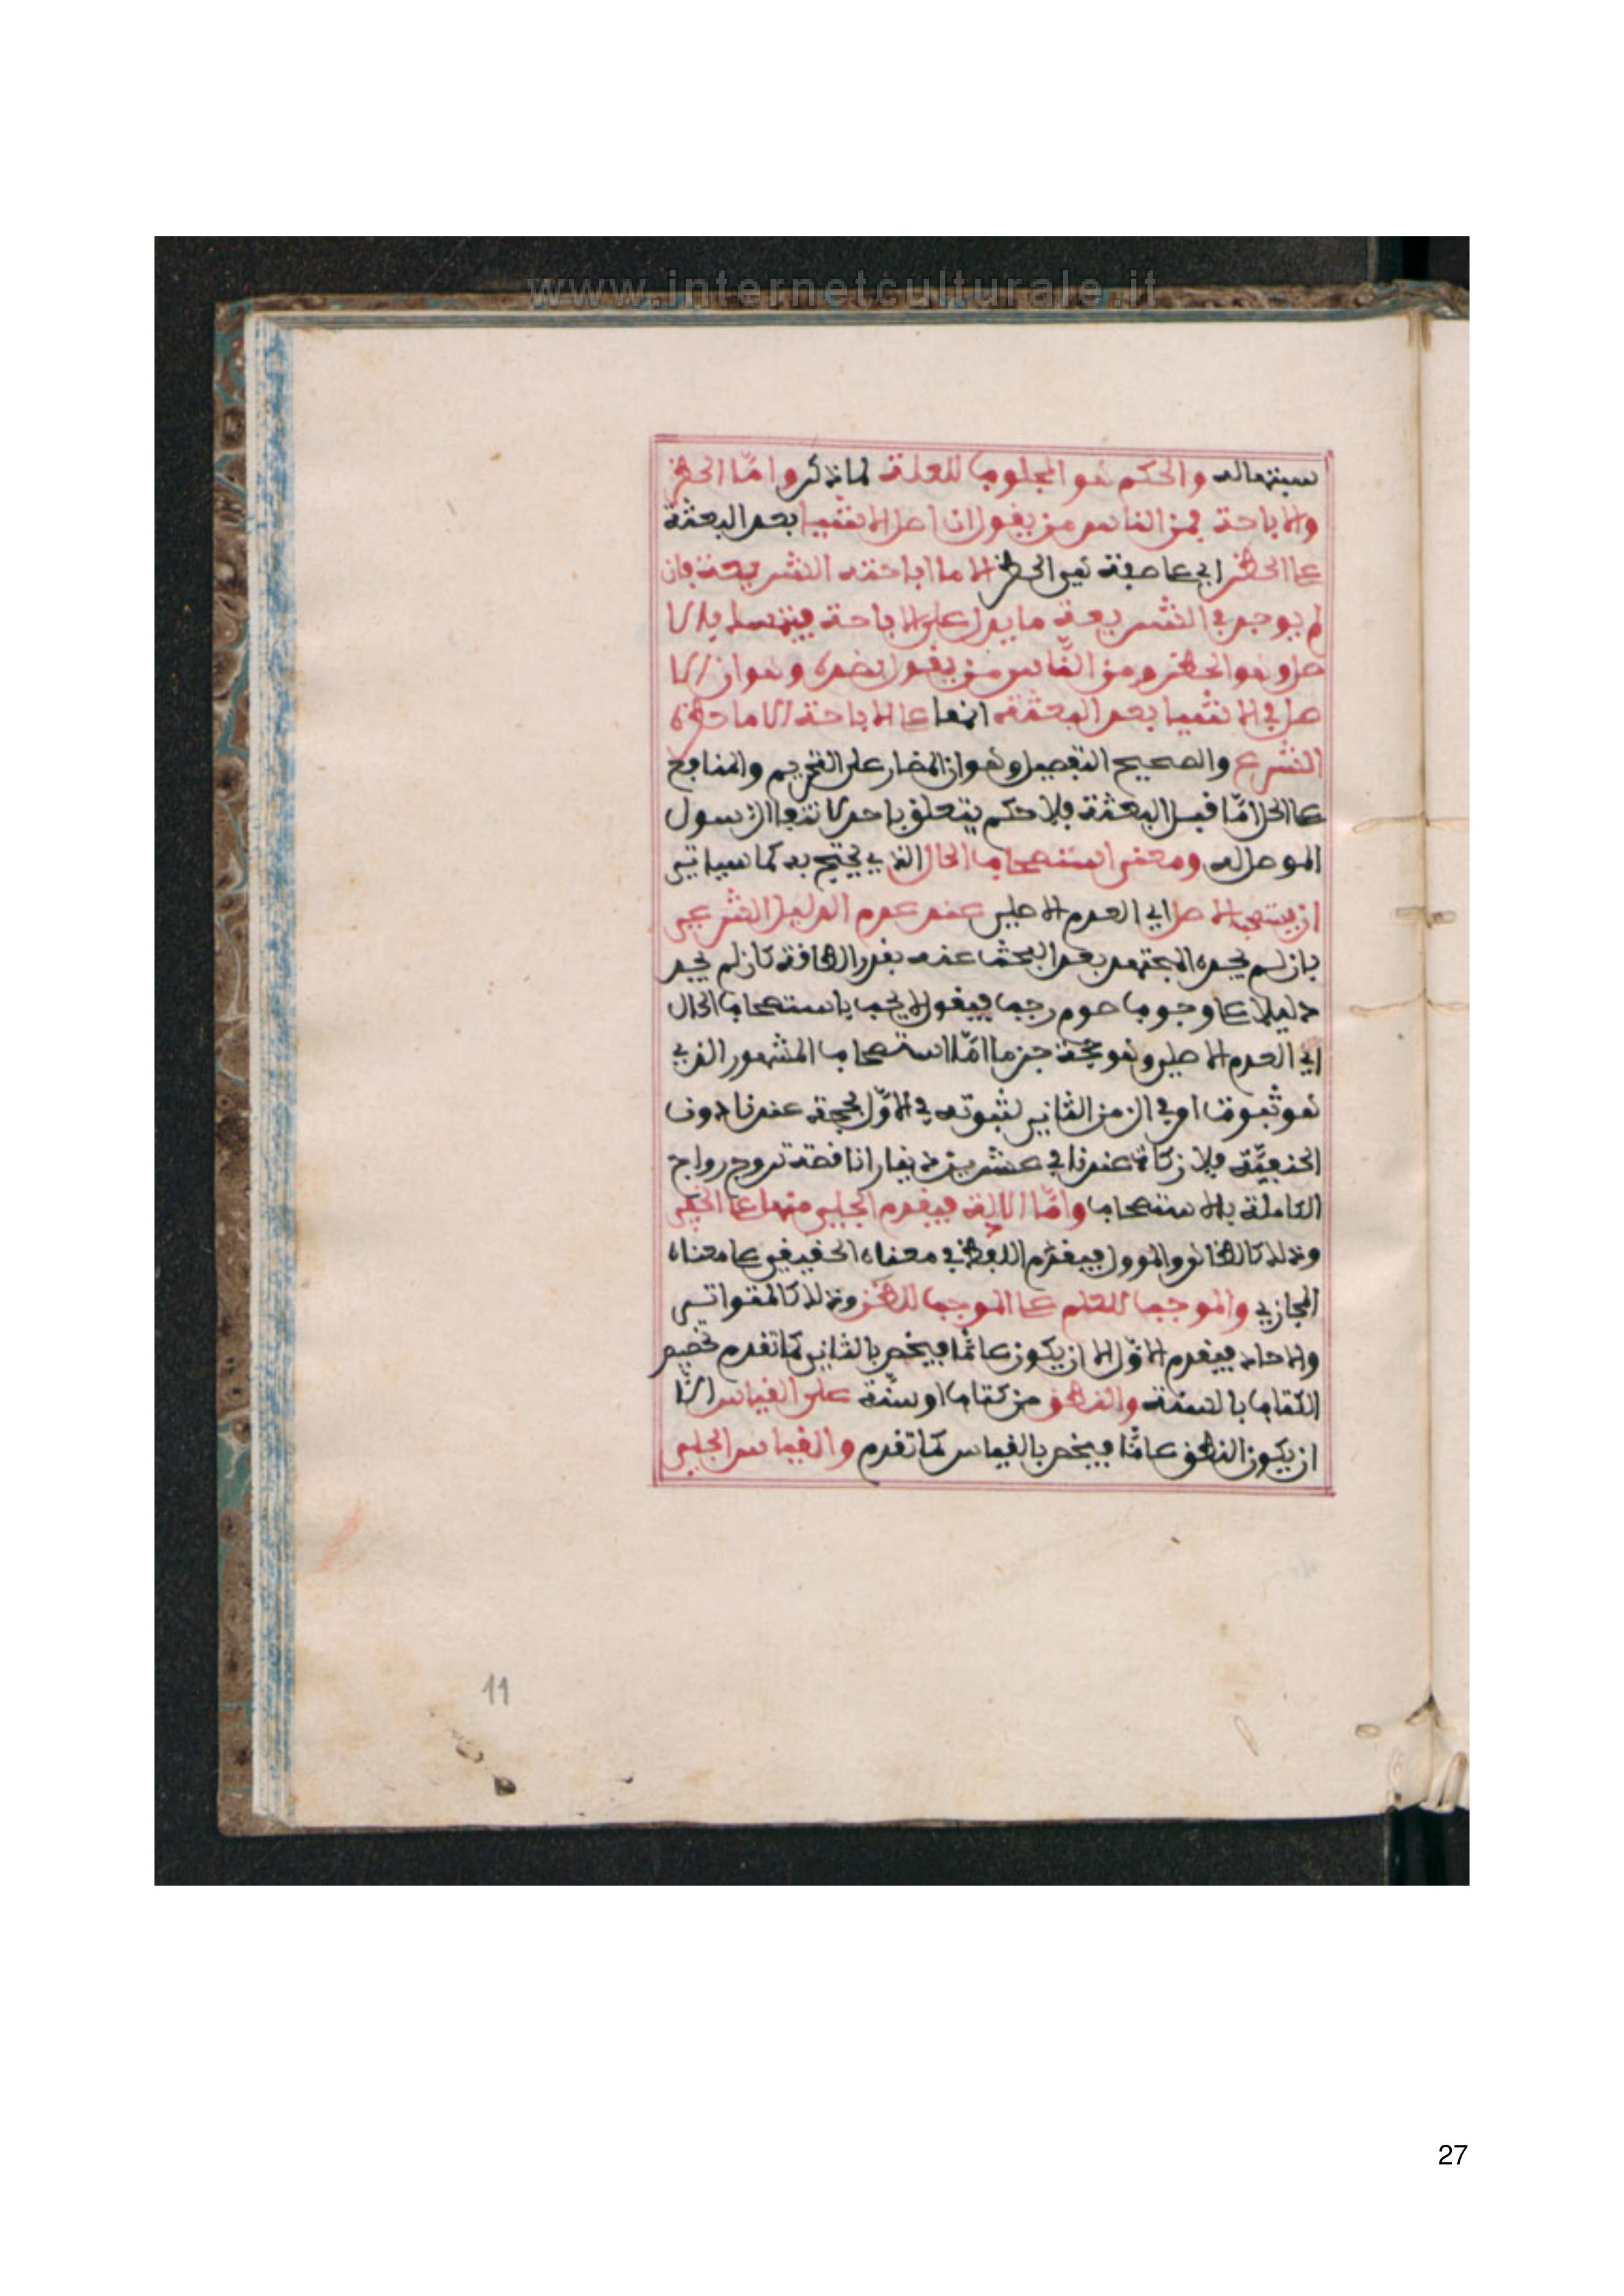 www.internetculturale.it
سبتها له والحكم هو المجلوب للعلة لما ذكر واما الحظر
والاباحة فمن الناس من يقول ان اصل الاشيا بعد البعثة
على الحظر اي على صفة هي الحظر الا ما اباحته الشريعة فان
لم يوجد في الشريعة ما يدل على الاباحة فيتمسك بالا
صل وهو الحظر ومن الناس من يقول بضده وهو ان الا
صل في الاشيا بعد البعثة انها على الاباحة الا ما حظره
الشرع والصحيح التفصيل وهو ان المضار على التحريم والمنافع
على الحل امّا قبل البعثة فلا حكم يتعلق باحد لانتفا الرسول
الموصل له ومعنى استصحاب الحال الذي يحتج به كما سياتي
ان يستصحب الاصل اي العدم الاصلي عند عدم الدليل الشرعي
بان لم يجده المجتهد بعد البحث عنه بقدر الطاقة كان لم يجد
دليلا على وجوب صوم رجب فيقول لا يجب باستصحاب الحال
اي العدم الاصلي وهو حجة جزما امّا الاستصحاب المشهور الذي
هو ثبوت امر في الزمن الثاني لثبوته في الاوّل فحجة عندنا دون
الحنفيّة فلا زكاة عندنا في عشرين دينارا ناقصة تروج رواج
الكاملة بالاستصحاب وامّا الادلة فيقدم الجلي منها على الخفي
وذلك كالظاهر والموول فيقدّم اللفظ في معناه الحقيقي على معناه
المجازي والموجب للعلم على الموجب للظن وذلك كالمتواتر
والاحاد فيقدم الاوّل الا ان يكون عامّا فيخص بالثاني كما تقدم تخصيص
الكتاب بالسنة والنطق من كتاب او سنّة على القياس الّا
ان يكون النطق عامّا فيخص بالقياس كما تقدم والقياس الجلي
11
27